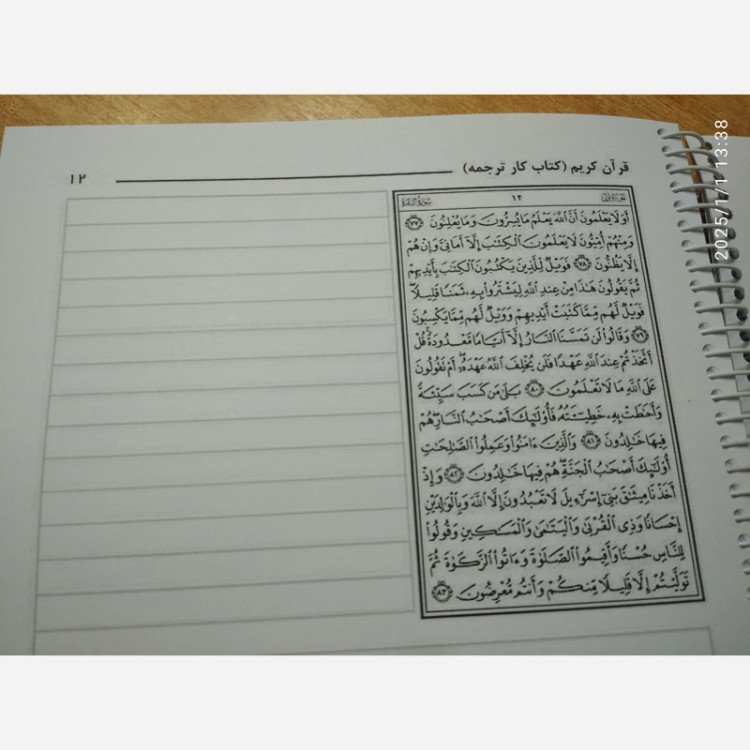 قرآن کریم (کتاب کار ترجمه)
۱۲
۱۲
أَوَلَا يَعْلَمُونَ أَنَّ ٱللَّهَ يَعْلَمُ مَا يُسِرُّونَ وَمَا يُعْلِنُونَ ۝٧٧
وَمِنْهُمْ أُمِّيُّونَ لَا يَعْلَمُونَ ٱلْكِتَٰبَ إِلَّآ أَمَانِىَّ وَإِنْ هُمْ
إِلَّا يَظُنُّونَ ۝٧٨ فَوَيْلٌ لِّلَّذِينَ يَكْتُبُونَ ٱلْكِتَٰبَ بِأَيْدِيهِمْ
ثُمَّ يَقُولُونَ هَٰذَا مِنْ عِندِ ٱللَّهِ لِيَشْتَرُوا۟ بِهِۦ ثَمَنًا قَلِيلًا ۖ
فَوَيْلٌ لَّهُم مِّمَّا كَتَبَتْ أَيْدِيهِمْ وَوَيْلٌ لَّهُم مِّمَّا يَكْسِبُونَ
۝٧٩ وَقَالُوا۟ لَن تَمَسَّنَا ٱلنَّارُ إِلَّآ أَيَّامًا مَّعْدُودَةً ۚ قُلْ
أَتَّخَذْتُمْ عِندَ ٱللَّهِ عَهْدًا فَلَن يُخْلِفَ ٱللَّهُ عَهْدَهُۥٓ ۖ أَمْ تَقُولُونَ
عَلَى ٱللَّهِ مَا لَا تَعْلَمُونَ ۝٨٠ بَلَىٰ مَن كَسَبَ سَيِّئَةً
وَأَحَٰطَتْ بِهِۦ خَطِيٓـَٔتُهُۥ فَأُو۟لَٰٓئِكَ أَصْحَٰبُ ٱلنَّارِ ۖ هُمْ
فِيهَا خَٰلِدُونَ ۝٨١ وَٱلَّذِينَ ءَامَنُوا۟ وَعَمِلُوا۟ ٱلصَّٰلِحَٰتِ
أُو۟لَٰٓئِكَ أَصْحَٰبُ ٱلْجَنَّةِ ۖ هُمْ فِيهَا خَٰلِدُونَ ۝٨٢ وَإِذْ
أَخَذْنَا مِيثَٰقَ بَنِىٓ إِسْرَٰٓءِيلَ لَا تَعْبُدُونَ إِلَّا ٱللَّهَ وَبِٱلْوَٰلِدَيْنِ
إِحْسَانًا وَذِى ٱلْقُرْبَىٰ وَٱلْيَتَٰمَىٰ وَٱلْمَسَٰكِينِ وَقُولُوا۟
لِلنَّاسِ حُسْنًا وَأَقِيمُوا۟ ٱلصَّلَوٰةَ وَءَاتُوا۟ ٱلزَّكَوٰةَ ثُمَّ
تَوَلَّيْتُمْ إِلَّا قَلِيلًا مِّنكُمْ وَأَنتُم مُّعْرِضُونَ ۝٨٣
2025/1/1 13:38